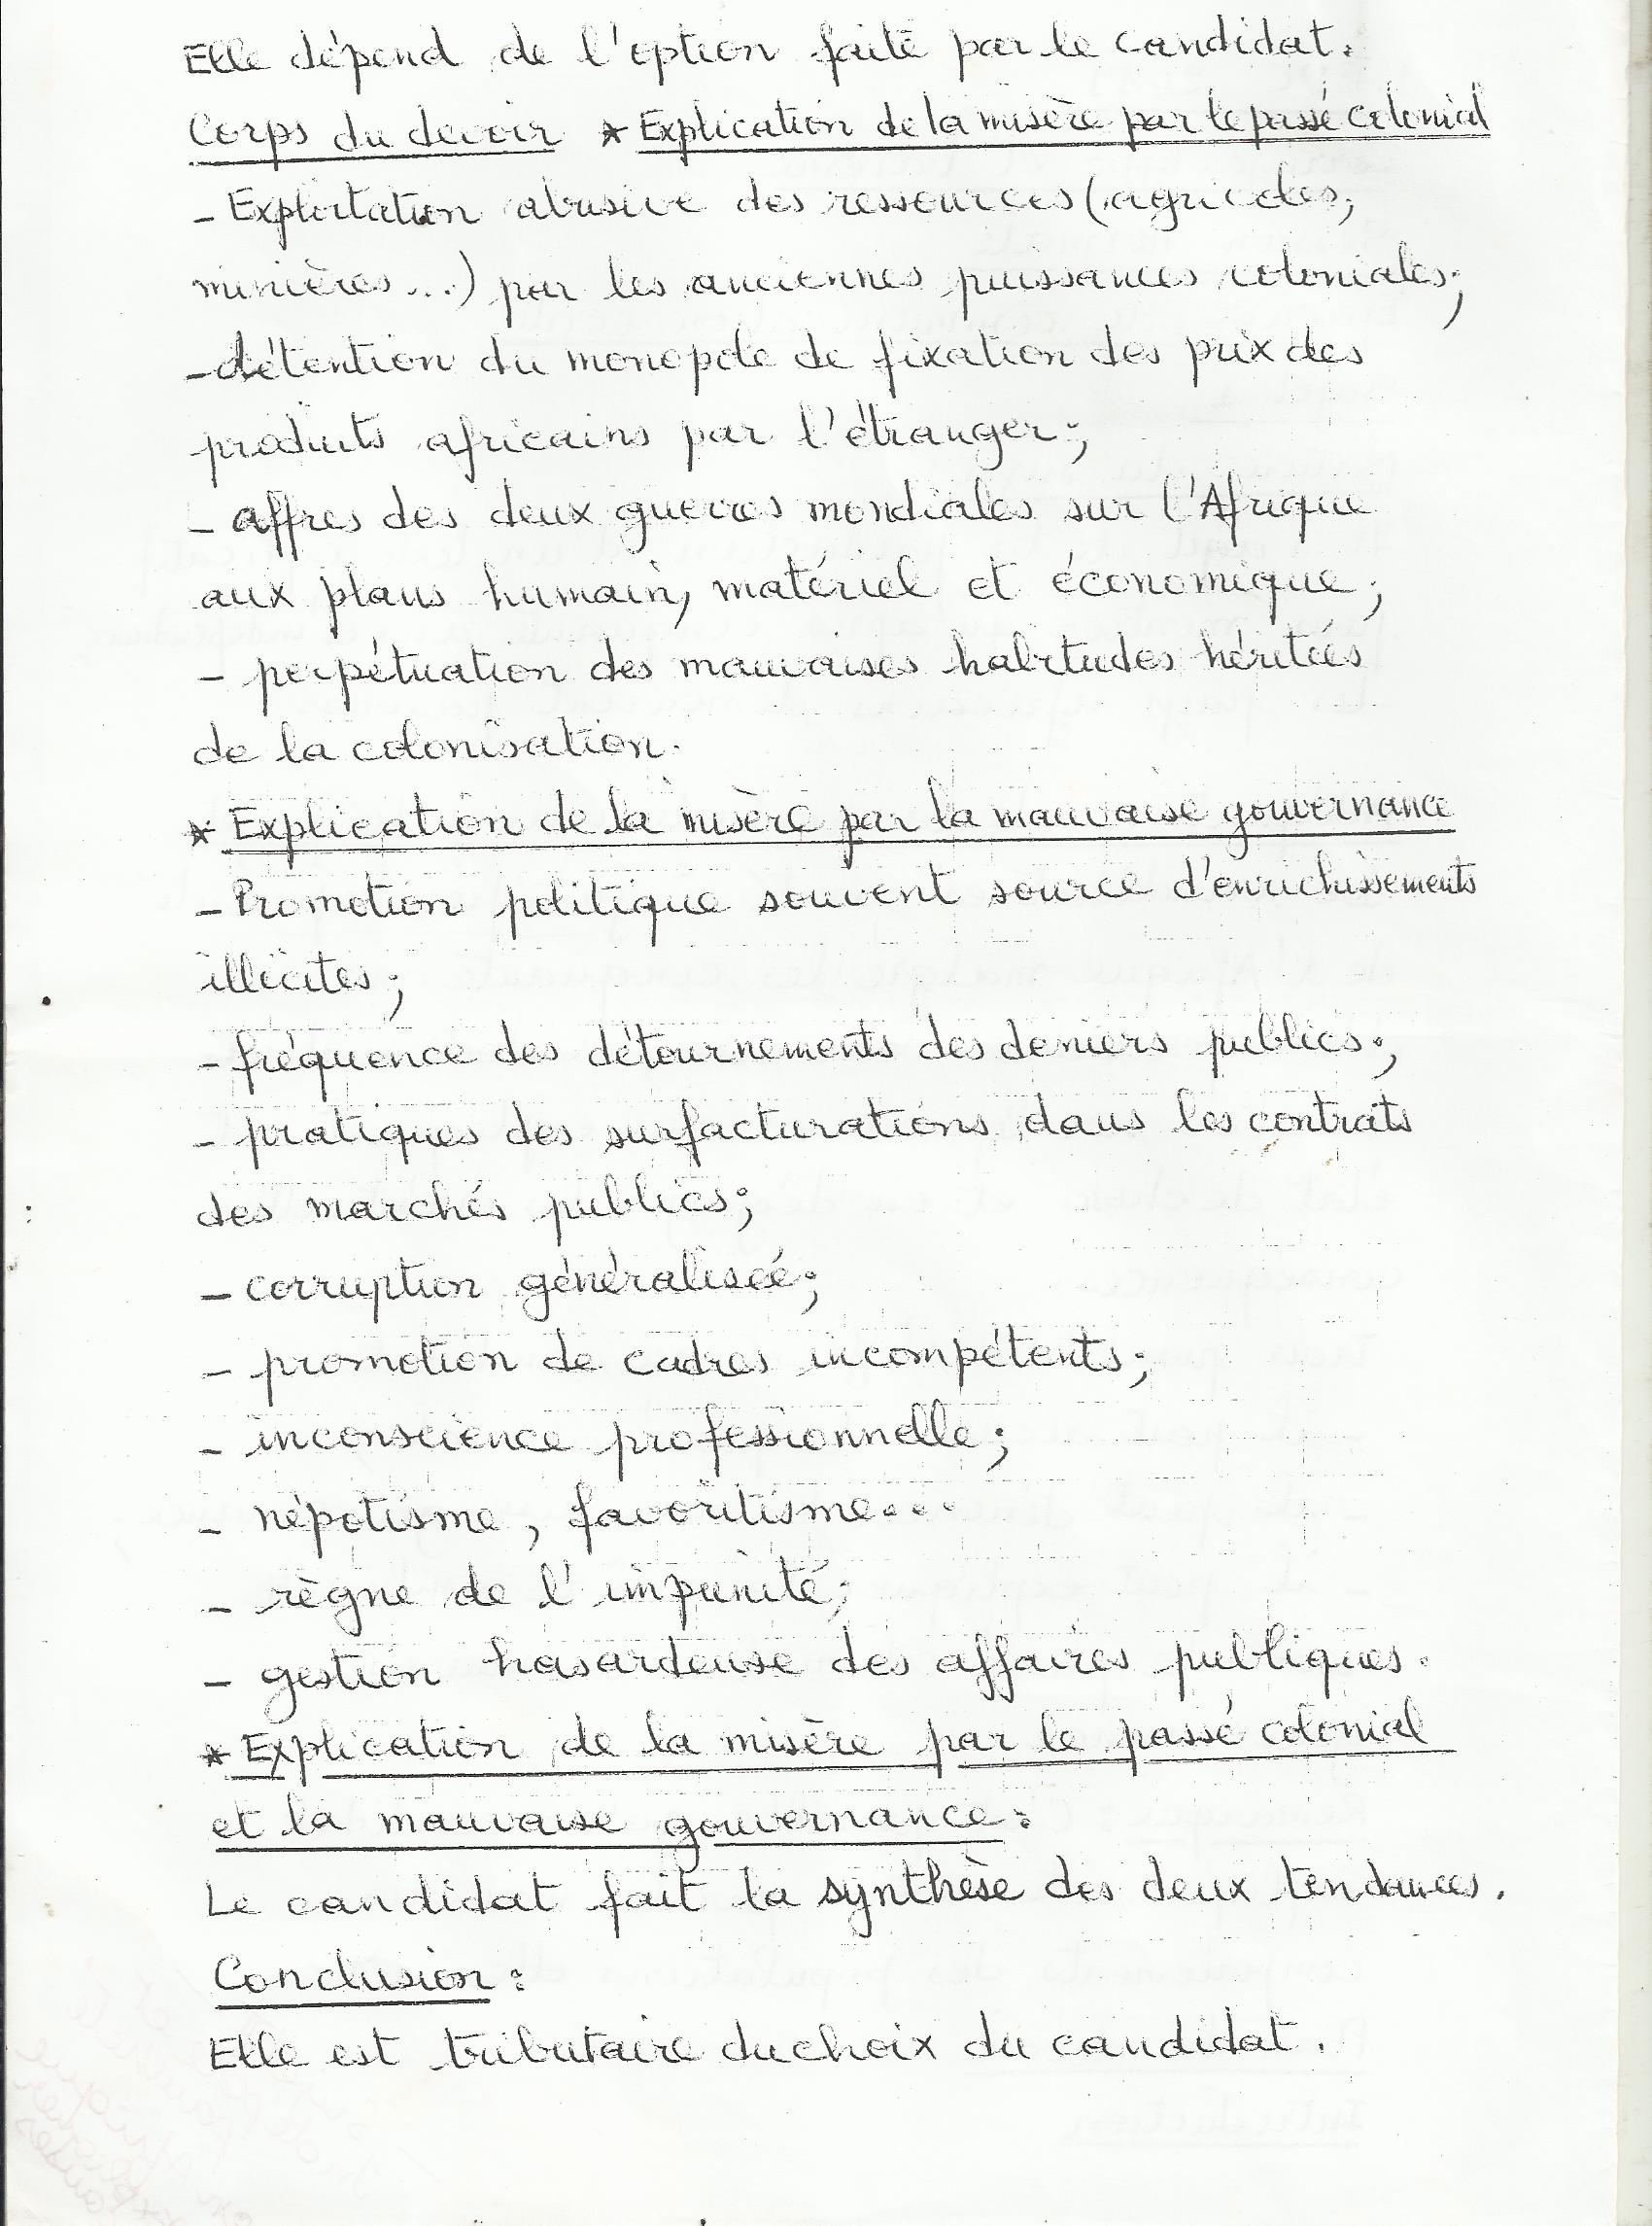 Elle dépend de l'option faite par le candidat.
Corps du devoir * Explication de la misère par le passé colonial
- Exploitation abusive des ressources (agricoles,
minières...) par les anciennes puissances coloniales;
- détention du monopole de fixation des prix des
produits africains par l'étranger;
- affres des deux guerres mondiales sur l'Afrique
aux plans humain, matériel et économique;
- perpétuation des mauvaises habitudes héritées
de la colonisation.
* Explication de la misère par la mauvaise gouvernance
- Promotion politique souvent source d'enrichissements
illicites;
- fréquence des détournements des deniers publics;
- pratiques des surfacturations dans les contrats
des marchés publics;
- corruption généralisée;
- promotion de cadres incompétents;
- inconscience professionnelle;
- népotisme, favoritisme...
- règne de l'impunité;
- gestion hasardeuse des affaires publiques.
* Explication de la misère par le passé colonial
et la mauvaise gouvernance:
Le candidat fait la synthèse des deux tendances.
Conclusion:
Elle est tributaire du choix du candidat.